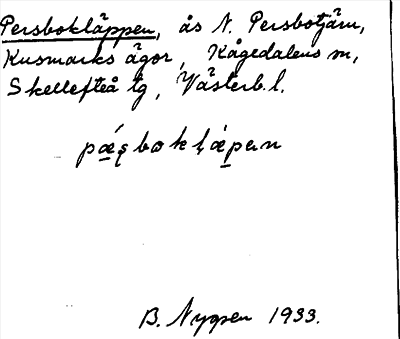 Persbokläppen, ås N. Persbotjärn,
Kusmarks ägor, Kågedalens sn,
Skellefteå tg, Västerb. l.
B. Nygren 1933.